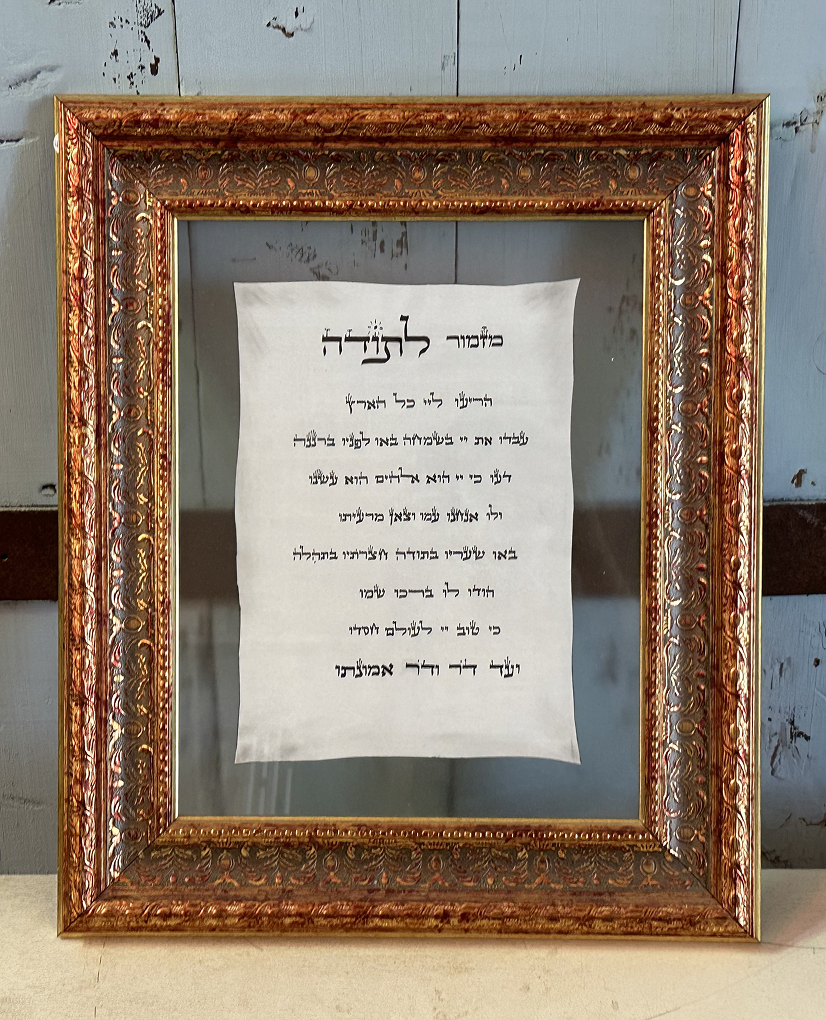 מזמור לתודה
הריעו ליי כל הארץ
עבדו את יי בשמחה באו לפניו ברננה
דעו כי יי הוא אלהים הוא עשנו
ולו אנחנו עמו וצאן מרעיתו
באו שעריו בתודה חצרתיו בתהלה
הודו לו ברכו שמו
כי טוב יי לעולם חסדו
ועד דר ודר אמונתו